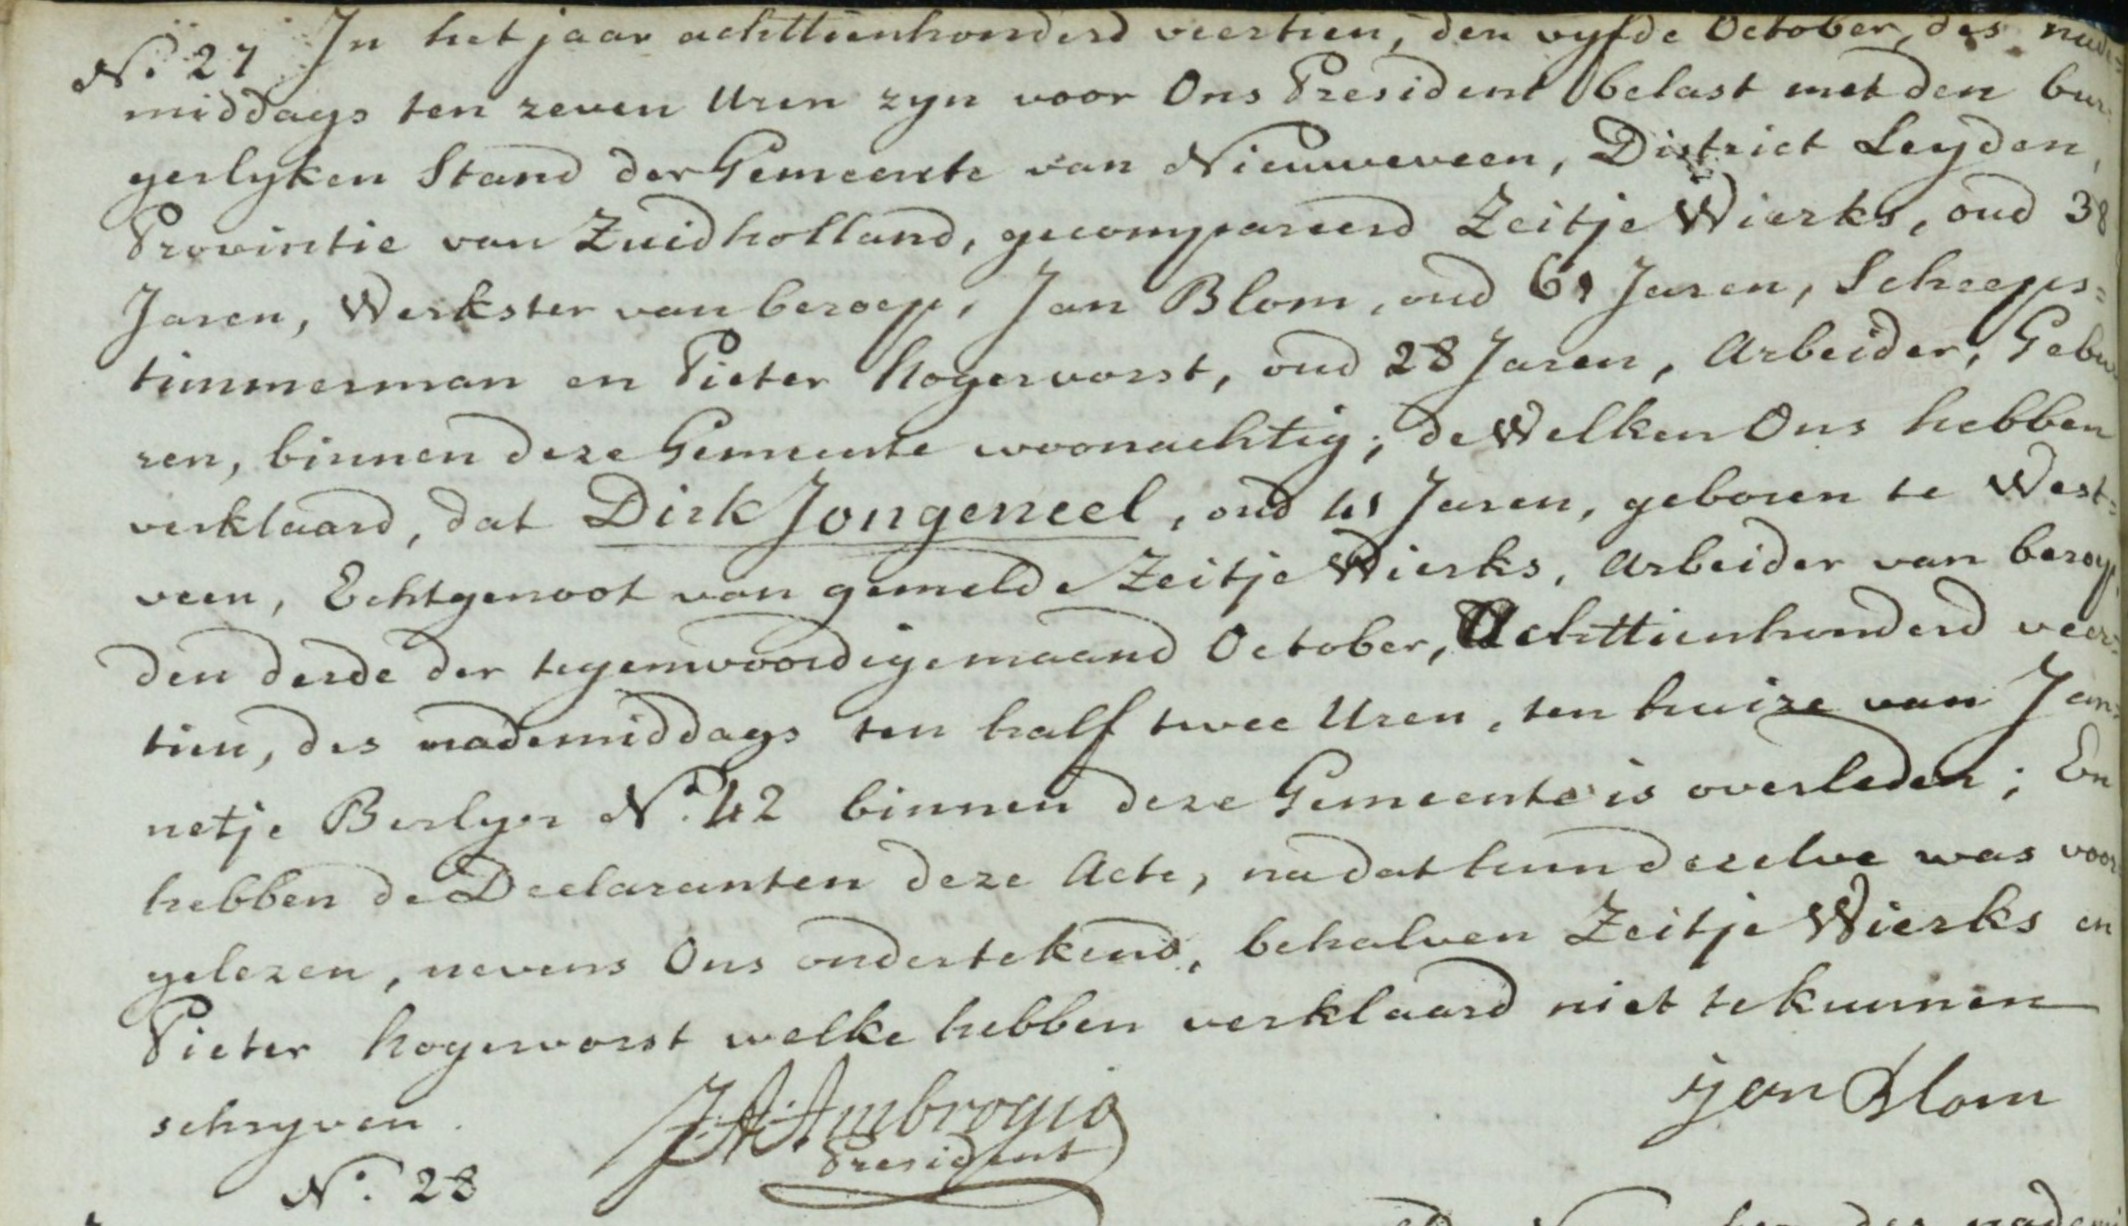 No. 27 In het jaar achttienhonderd veertien, den vyfde October, des nade=
middags ten zeven Uren zyn voor Ons President belast met den bur=
gerlyken Stand der Gemeente van Nieuweveen, District Leyden,
Provintie van Zuidholland, gecompareerd Zeitje Wierks, oud 38
Jaren, Werkster van beroep, Jan Blom, oud 61 Jaren, Scheeps=
timmerman en Pieter Hogervorst, oud 28 Jaren, Arbeider, Gebu
ren, binnen deze Gemeente woonachtig; de Welken Ons hebben
verklaard, dat Dirk Jongeneel, oud 41 Jaren, geboren te West=
veen, Echtgenoot van gemelde Zeitje Wierks, Arbeider van beroep
den derde der tegenwoordige maand October, Achttienhonderd veer=
tien, des nademiddags ten half twee Uren, ten huize van Jan=
netje Berlyn No. 42 binnen deze Gemeente is overleden; En
hebben de Declaranten deze Acte, na dat hun dezelve was voor
gelezen, nevens Ons ondertekend, behalven Zeitje Wierks en
Pieter Hogervorst welke hebben verklaard niet te kunnen
schryven.
J. A. Ambrogio
President
jan Blom
No. 28